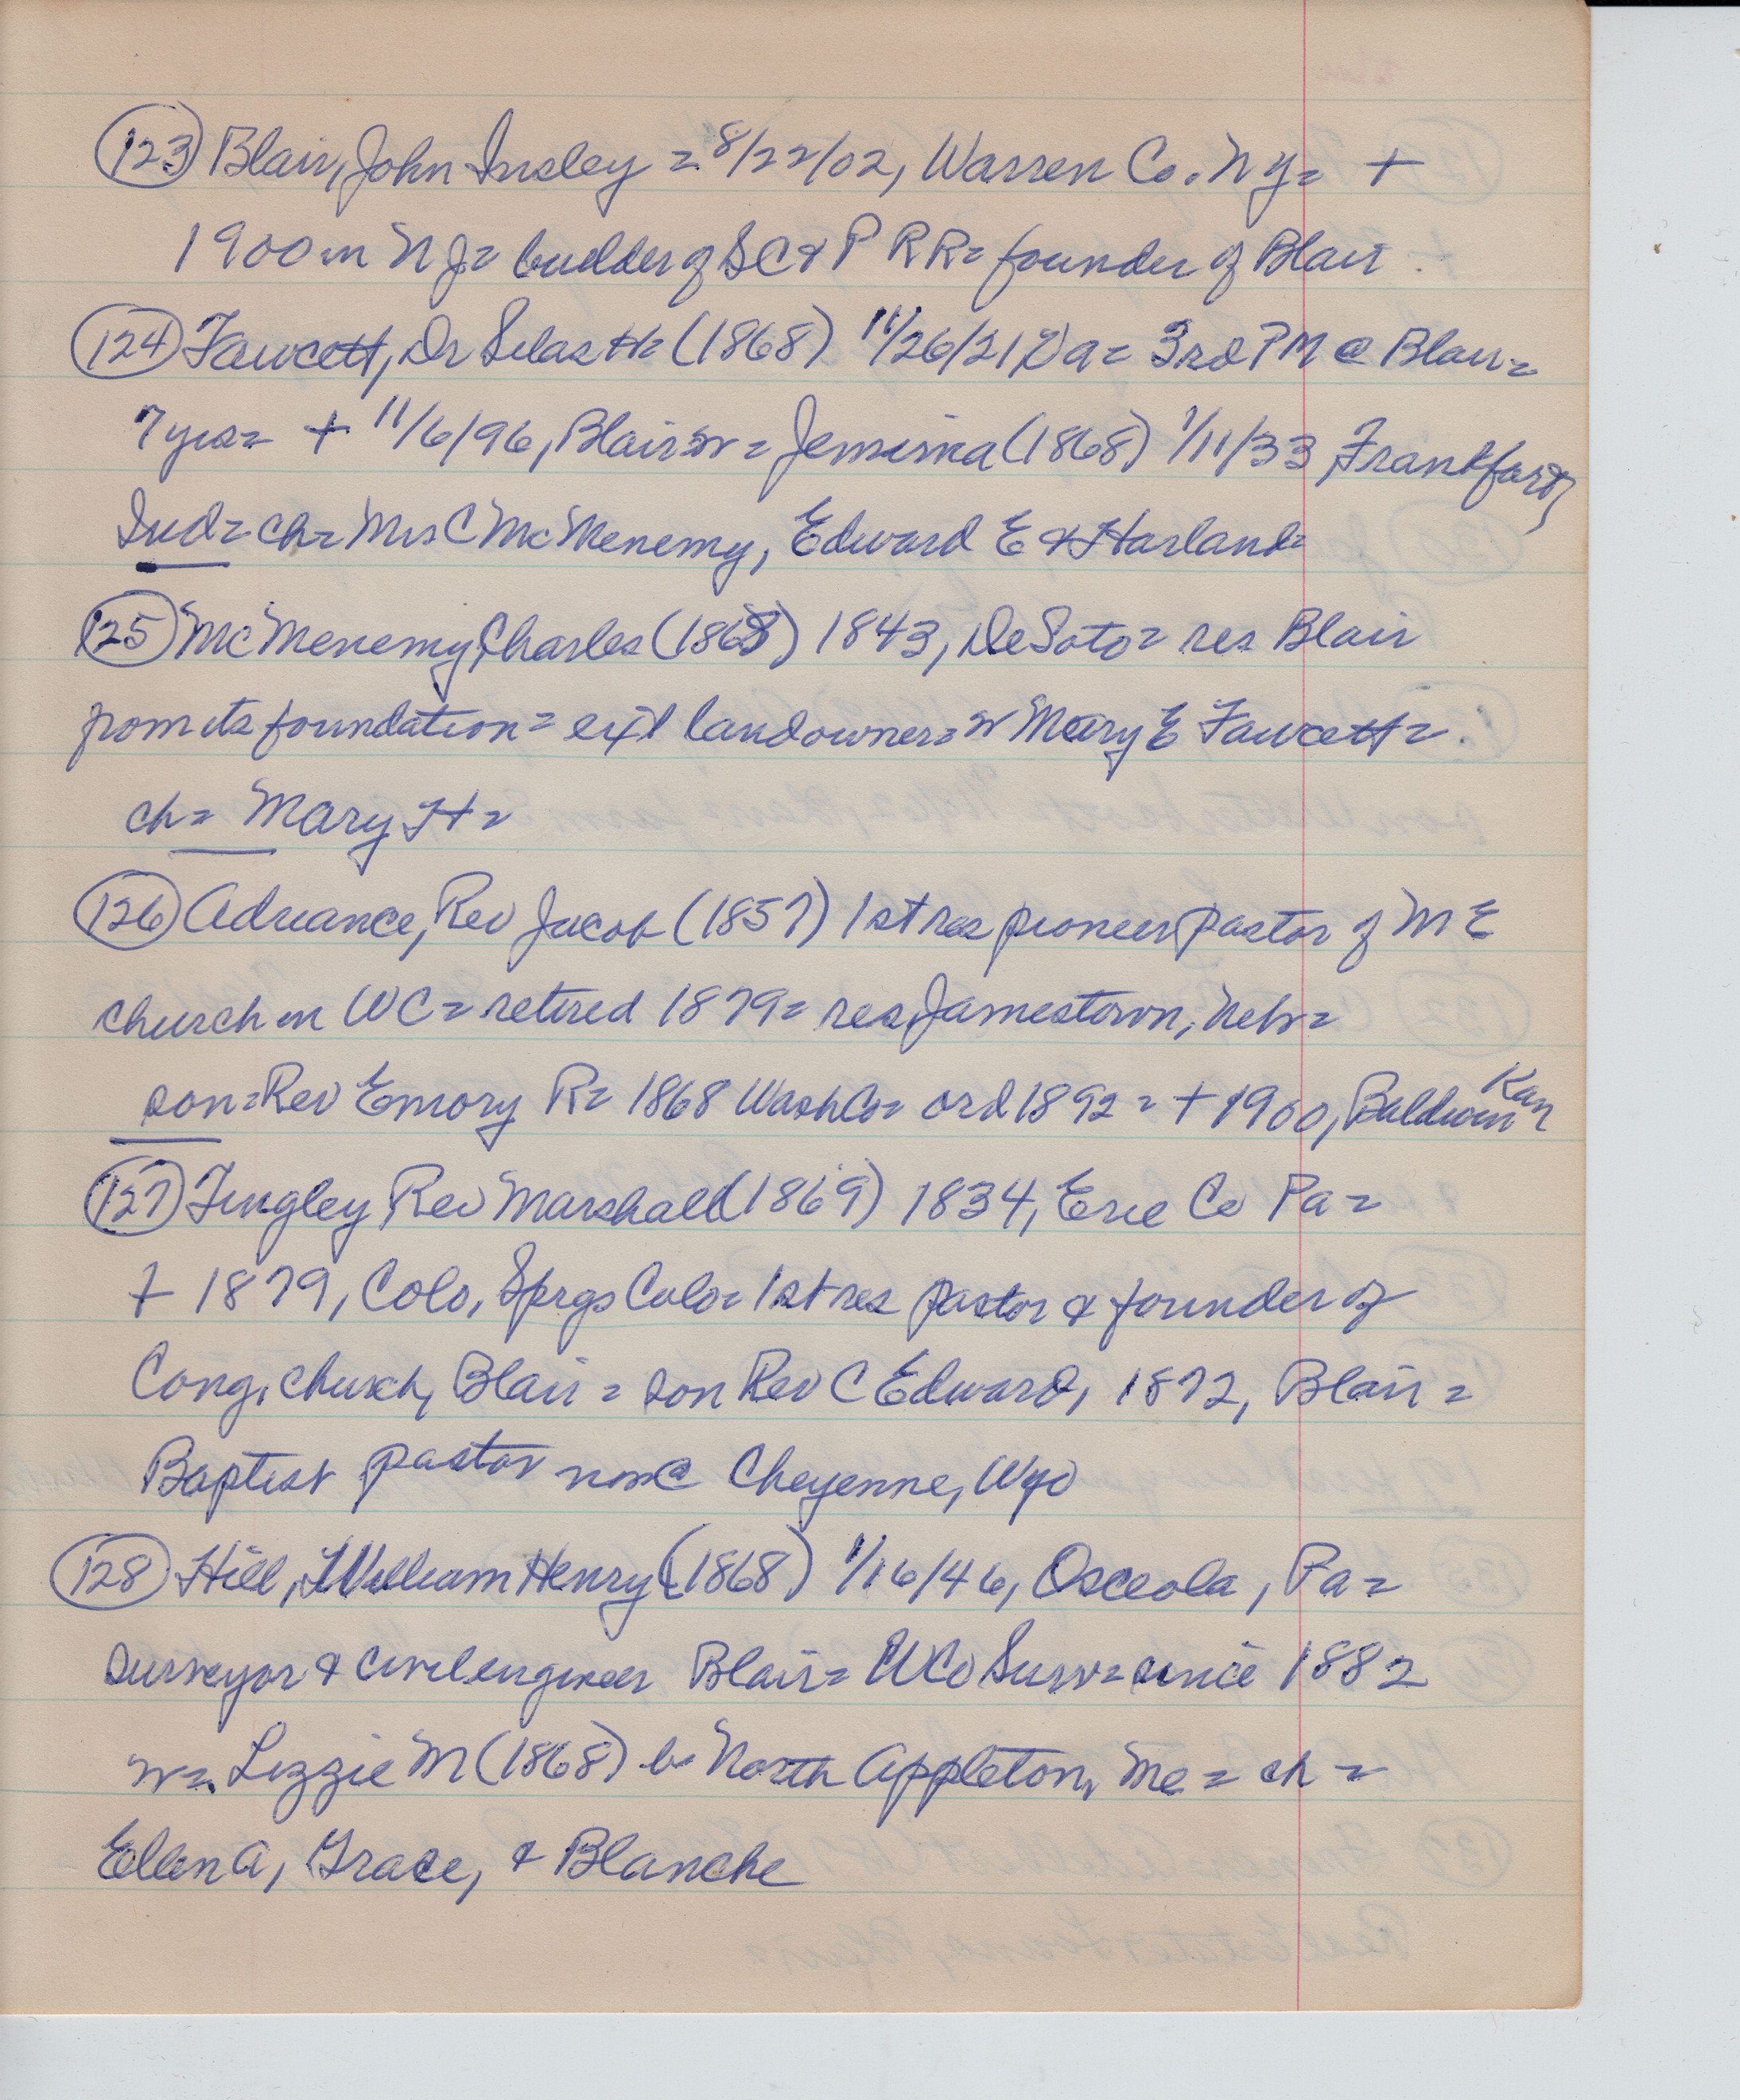 (123) Blair, John Insley = 8/22/02, Warren Co. N y = +
1900 in N J = builder of S C & P R R = founder of Blair
(124) Fawcett, Dr Silas H = (1868) 11/26/21 Va = 3rd PM @ Blair =
7 yrs = + 11/6/96, Blair w = Jemima (1868) 1/11/33, Frankfort,
Ind = ch = Mrs C McMenemy, Edward E & Harland =
(125) McMenemy, Charles (1868) 1843, DeSoto = res Blair
from its foundation = ext landowner = w Mary E Fawcett =
ch = Mary H =
(126) Adriance, Rev Jacob (1857) 1st res pioneer pastor of M E
church in WC = retired 1879 = res Jamestown, Nebr =
son = Rev Emory R = 1868 Wash Co = ord 1892 = + 1900, Baldwin Kan
(127) Tingley Rev Marshall (1869) 1834, Erie Co Pa =
+ 1879, Colo, Sprgs Colo = 1st res pastor & founder of
Cong, church, Blair = son Rev C Edward, 1872, Blair =
Baptist pastor now @ Cheyenne, Wyo
(128) Hill, William Henry (1868) 1/16/46, Osceola, Pa =
surveyor & civil engineer Blair = WCo Surv = since 1882
w = Lizzie M (1868) b North Appleton, Me = ch =
Ellen A, Grace, & Blanche